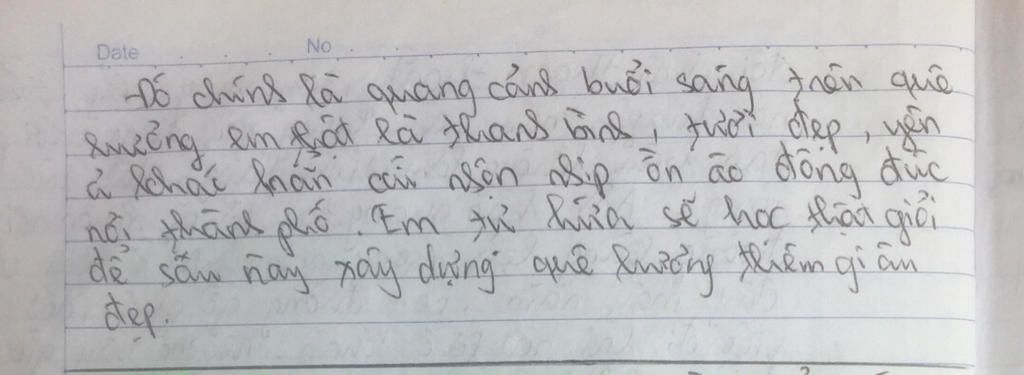 Date No
Đó chính là quang cảnh buổi sáng trên quê
hương em thật là thanh bình, tươi đẹp, yên
ả khác hẳn cái nhộn nhịp ồn ào đông đúc
nơi thành phố. Em tự hứa sẽ học thật giỏi
để sau này xây dựng quê hương thêm giàu
đẹp.